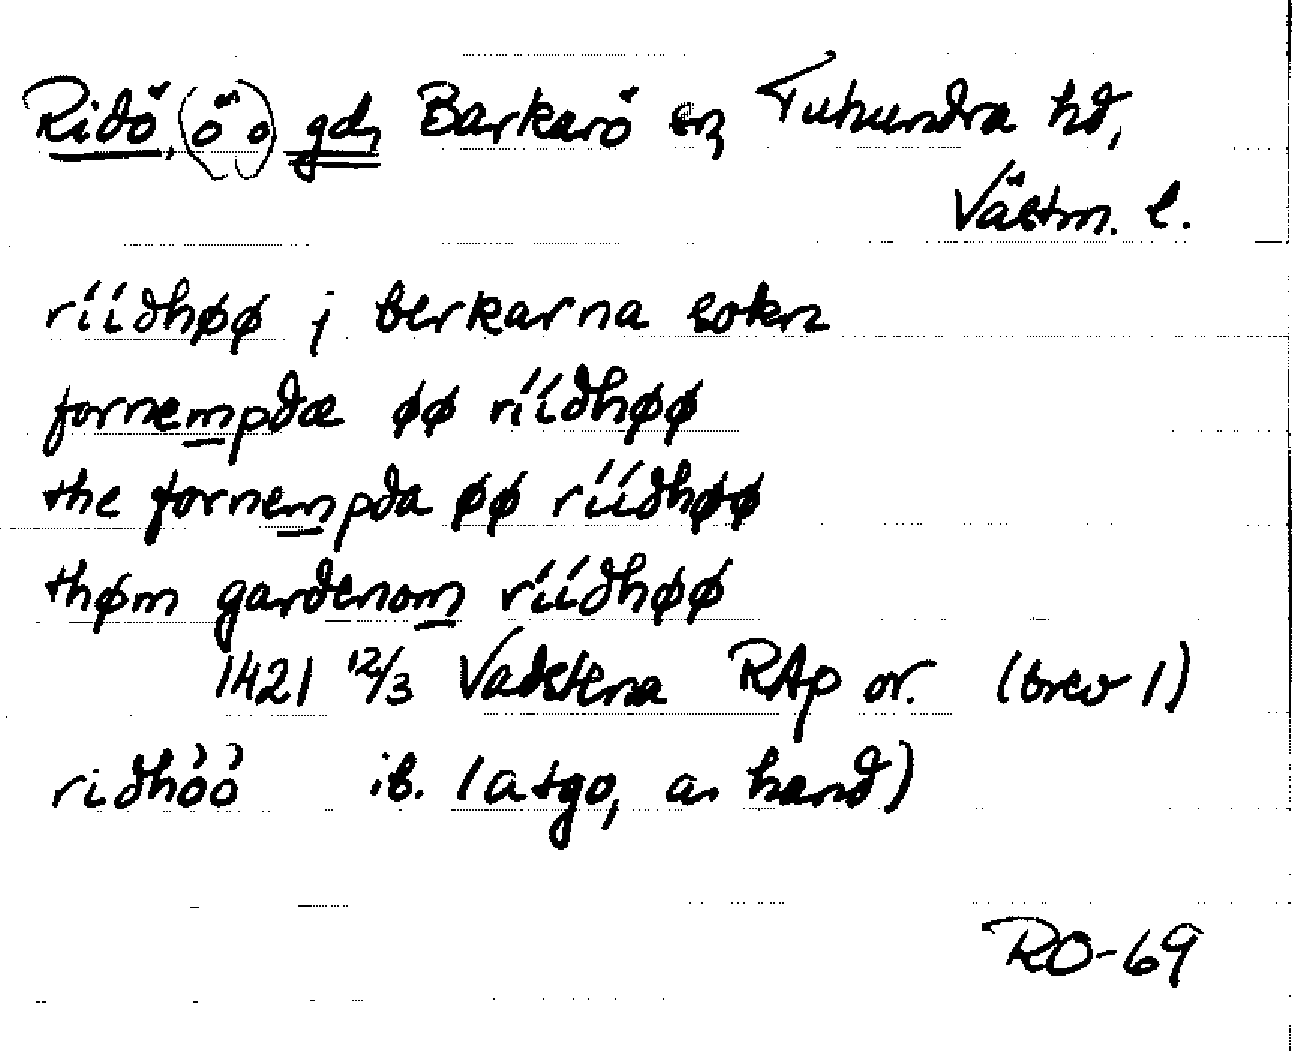 Ridö, (ö o) gd, Barkarö sn, Tuhundra hd,
Västm. l.
ríídhøø j berkarna sokn
fornempdæ øø ríídhøø
the fornempda øø ríídhøø
thøm gardenom ríídhøø
1421 12/3 Vadstena RAp or. (brev 1)
ridhóó ib. (atgo, a. hand)
RO-69